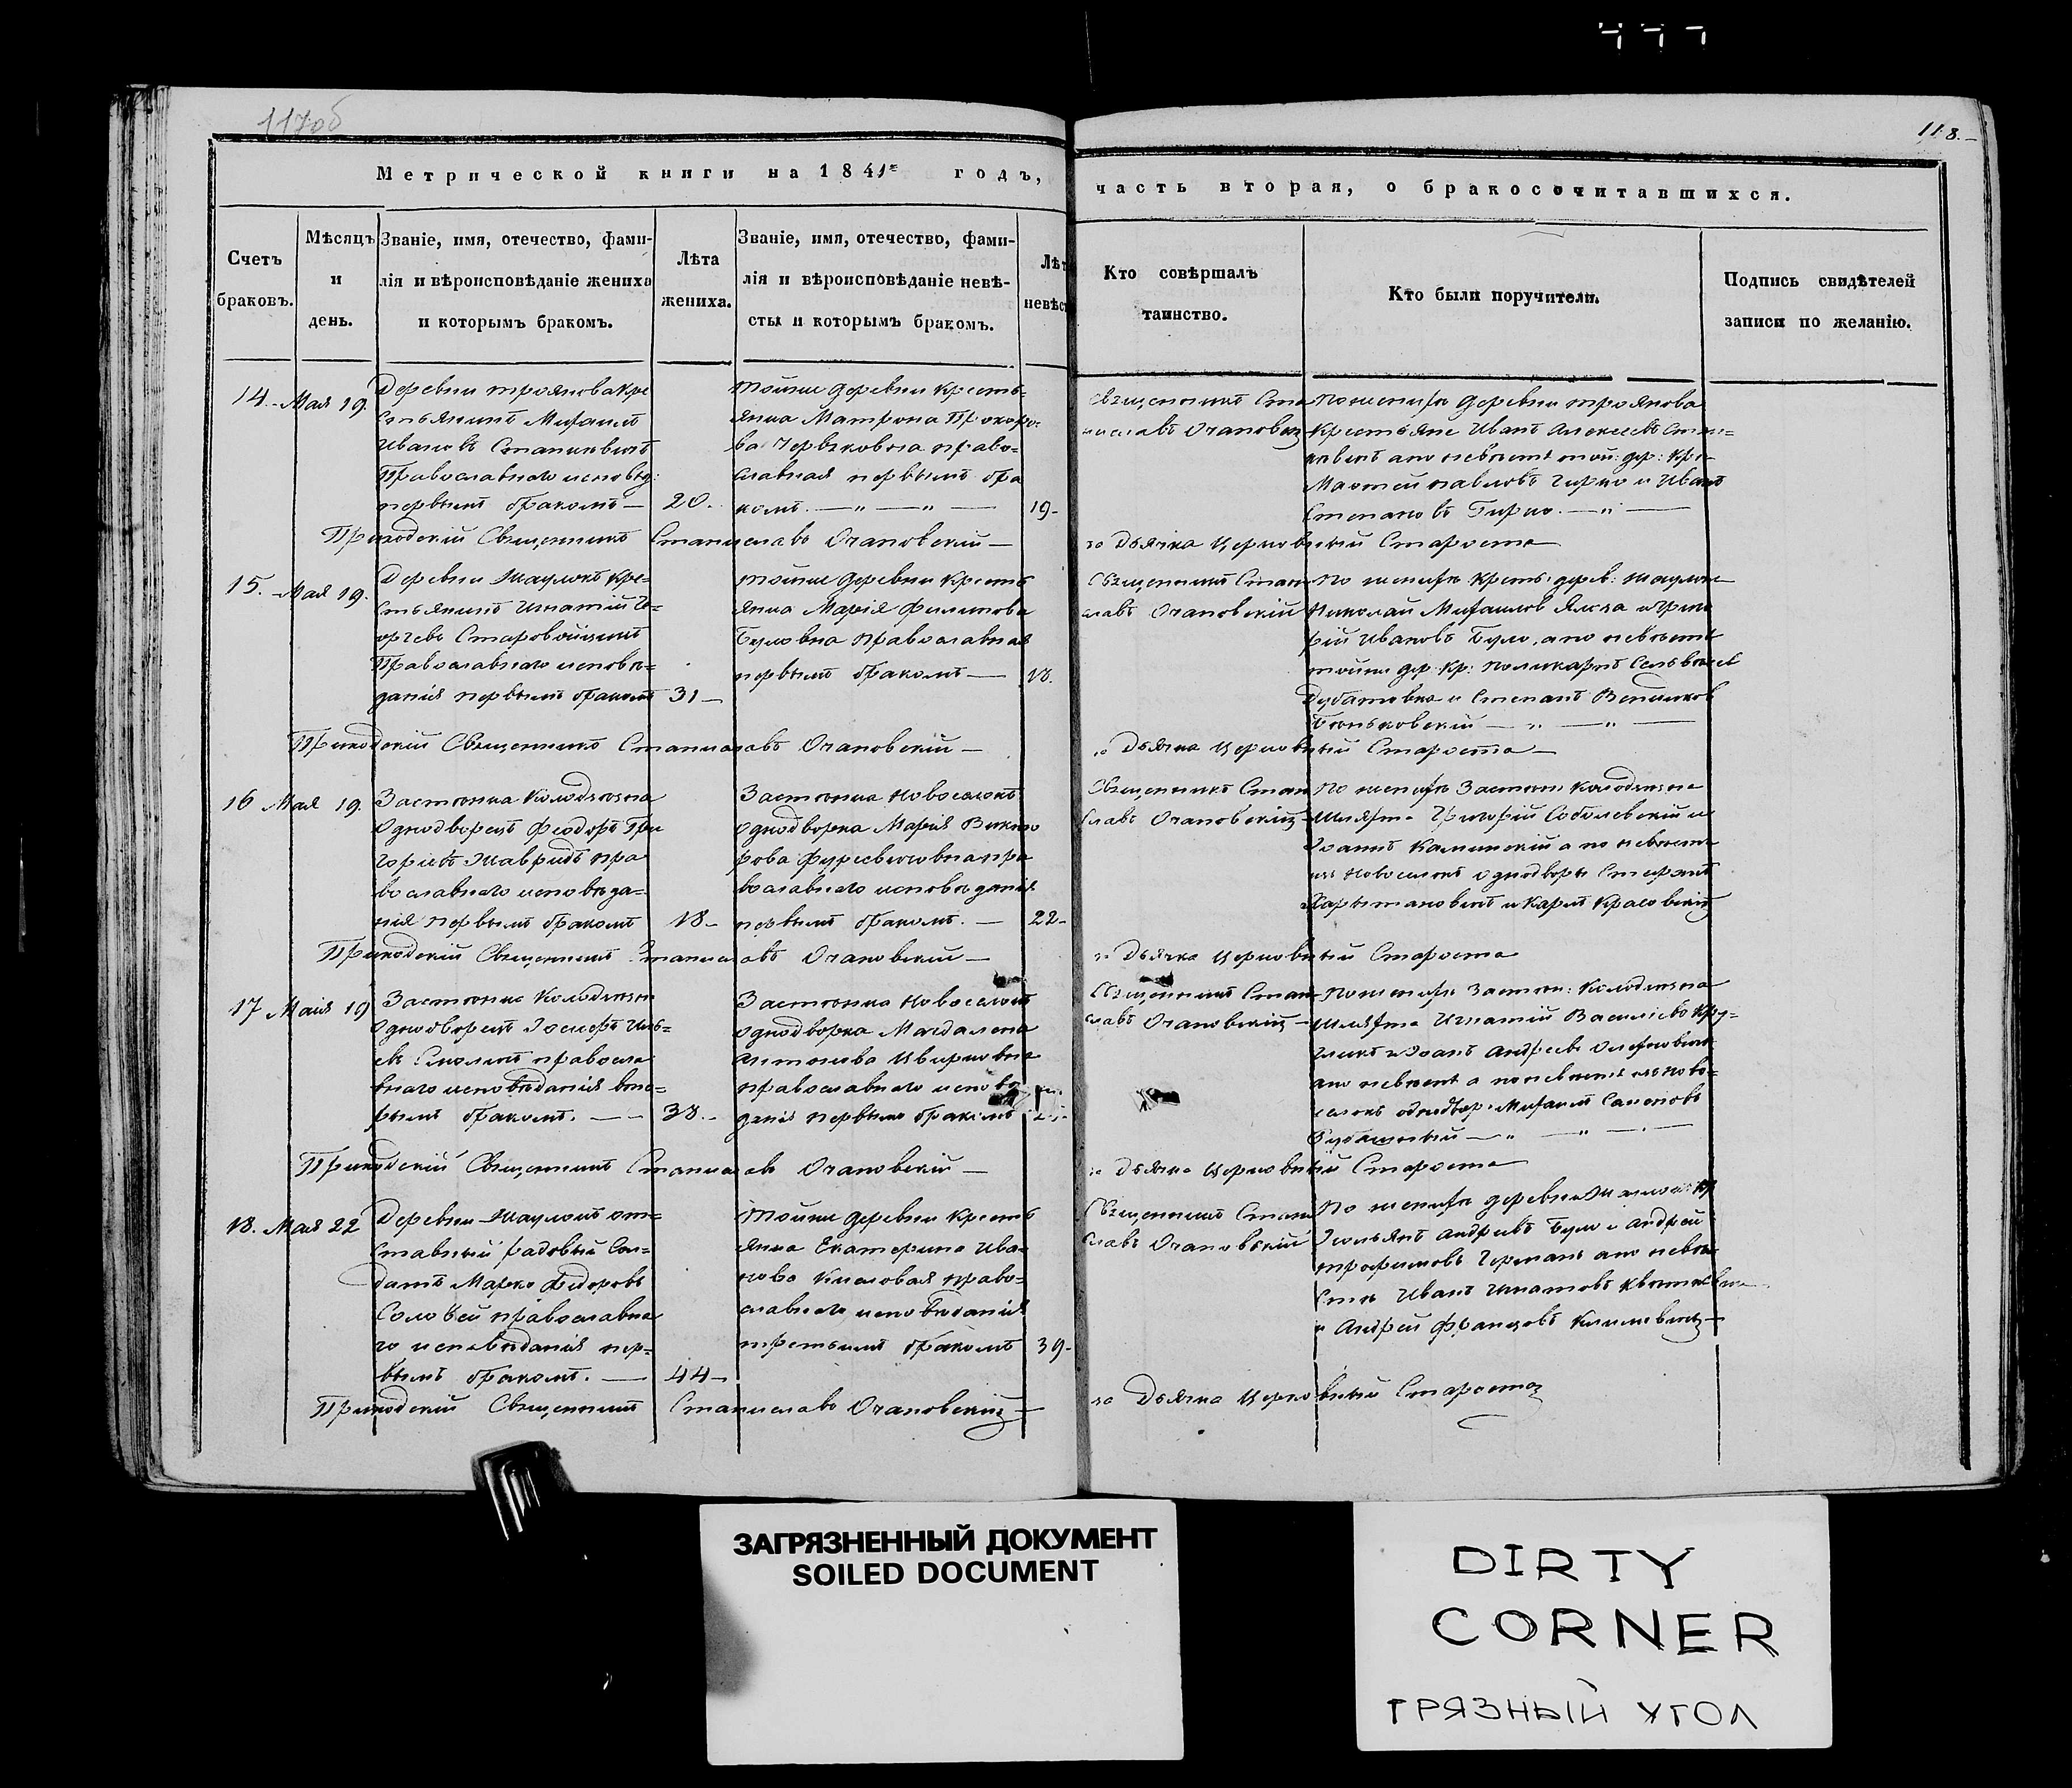 117об
118.-
Метрической книги на 1841 годъ,
часть вторая, о бракосочитавшихся.
Счетъ браковъ.
Мѣсяцъ и день.
Званіе, имя, отечество, фами-
лія и вѣроисповѣданіе жениха
и которымъ бракомъ.
Лѣта
жениха.
Званіе, имя, отечество, фами-
лія и вѣроисповѣданіе невѣ-
сты и которымъ бракомъ.
Лѣт
невѣс
Кто совѣршалъ
таинство.
Кто были поручители.
Подпись свидѣтелей
записи по желанію.
14.
Мая 19.
Деревни Троянова кре
стьянинъ Михаилъ
Ивановъ Станкевичъ
Православнаго исповед:
первымъ бракомъ —
20.
Тойже деревни кресть-
янка Матрона Прокоро-
ва Червяковна право-
славная первымъ бра
комъ. — " — " —
19-
Священникъ Ста
ниславъ Очановскій
По женихѣ деревни Троянова
Крестьяне Иванъ Алексеевъ Стан=
кевичъ а по невѣстѣ той: дер: кре
Матѳей Павловъ Гирко и Иванъ
Степановъ Гирко. — " —
Приходскій Священникъ Станиславъ Очановскій —
за Дьячка Церковный Староста
15.
Мая 19.
Деревни Жауломъ кре=
стьянинъ Игнатій Ге=
оргіевъ Старовойтъ
Православнаго исповѣ=
данія первымъ бракомъ
31 —
Тойже деревни кресть
янка Марія Филипова
Буловна Православная
первымъ бракомъ —
18.
Священникъ Стани
славъ Очановскій
По женихѣ кресть: дерев:
Николай Михаилов
рій Ивановъ Було, а по невѣстѣ
тойже дер: кр: Поликарпъ
и Степанъ
— " — " —
Приходскій Священникъ Станиславъ Очановскій —
за Дьячка Церковный Староста —
16
Мая 19.
Застѣнка Колодезна
Однодворецъ Феодоръ Гри
горіевъ Жавридъ пра
вославнаго исповѣда=
нія первымъ бракомъ
18-
Застѣнка Новоселокъ
Однодворка Марія
вославнаго исповѣданія
первымъ бракомъ. —
22-
Священникъ Стани
славъ Очановскій
По женихѣ Застѣн: Колодезна
Шляхта Григорій Соболевскій и
Іоаннъ Каминскій а по невѣстѣ
изъ Новоселокъ однодворы
и Карлъ Красовскій
Приходскій Священникъ Станиславъ Очановскій —
за Дьячка Церковный Староста
17
Маія 19
Застѣнка Колодезна
Однодворецъ Іосифъ
православ
наго исповѣданія вто=
рымъ бракомъ. —
38.-
Застѣнка Новоселокъ
Однодворка Магдалена
Антонова
православнаго исповѣ
данія первымъ бракомъ
Священникъ Стани
славъ Очановскій —
По женихѣ Застѣн: Колодезна
Шляхта Игнатій Василіевъ
Андреевъ
а по невѣстѣ а по невѣстѣ изъ Ново=
селокъ однодвор: Михаилъ
— " — " —
Приходскій Священникъ Станиславъ Очановскій —
за Дьячка Церковный Староста
18.
Мая 22
Деревни Жауломъ от=
ставный рядовый Сол=
датъ Марко Федоровъ
Соловей православна
го исповѣданія пер=
вымъ бракомъ. —
44 —
Тойже деревни кресть
янка Екатерина Ива=
нова Киселовая право=
славнаго исповѣданія
третьимъ бракомъ
39-
Священникъ Стани
славъ Очановскій
По женихѣ деревни
Андреевъ Було и Андрей
Трофимовъ а по невѣ=
стѣ Иванъ Игнатовъ
и Андрей Францовъ
Приходскій Священникъ Станиславъ Очановскій —
за Дьячка Церковный Староста
ЗАГРЯЗНЕННЫЙ ДОКУМЕНТ
SOILED DOCUMENT
DIRTY
CORNER
ГРЯЗНЫЙ УГОЛ